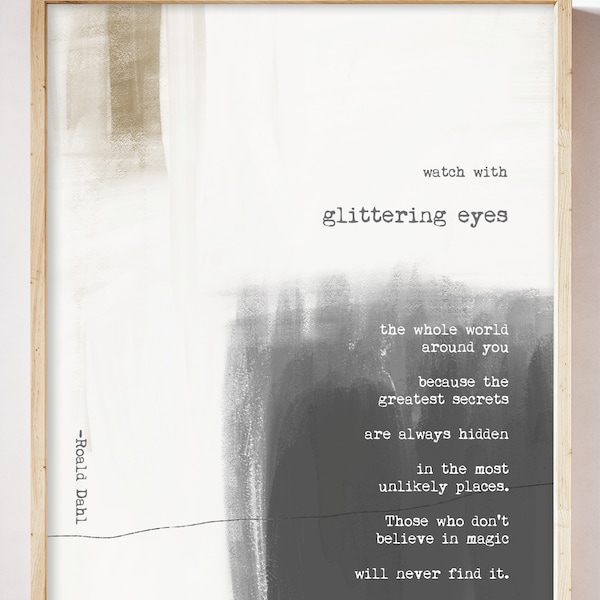 watch with
glittering eyes
the whole world
around you
because the
greatest secrets
are always hidden
in the most
unlikely places.
Those who don't
believe in magic
will never find it.
-Roald Dahl